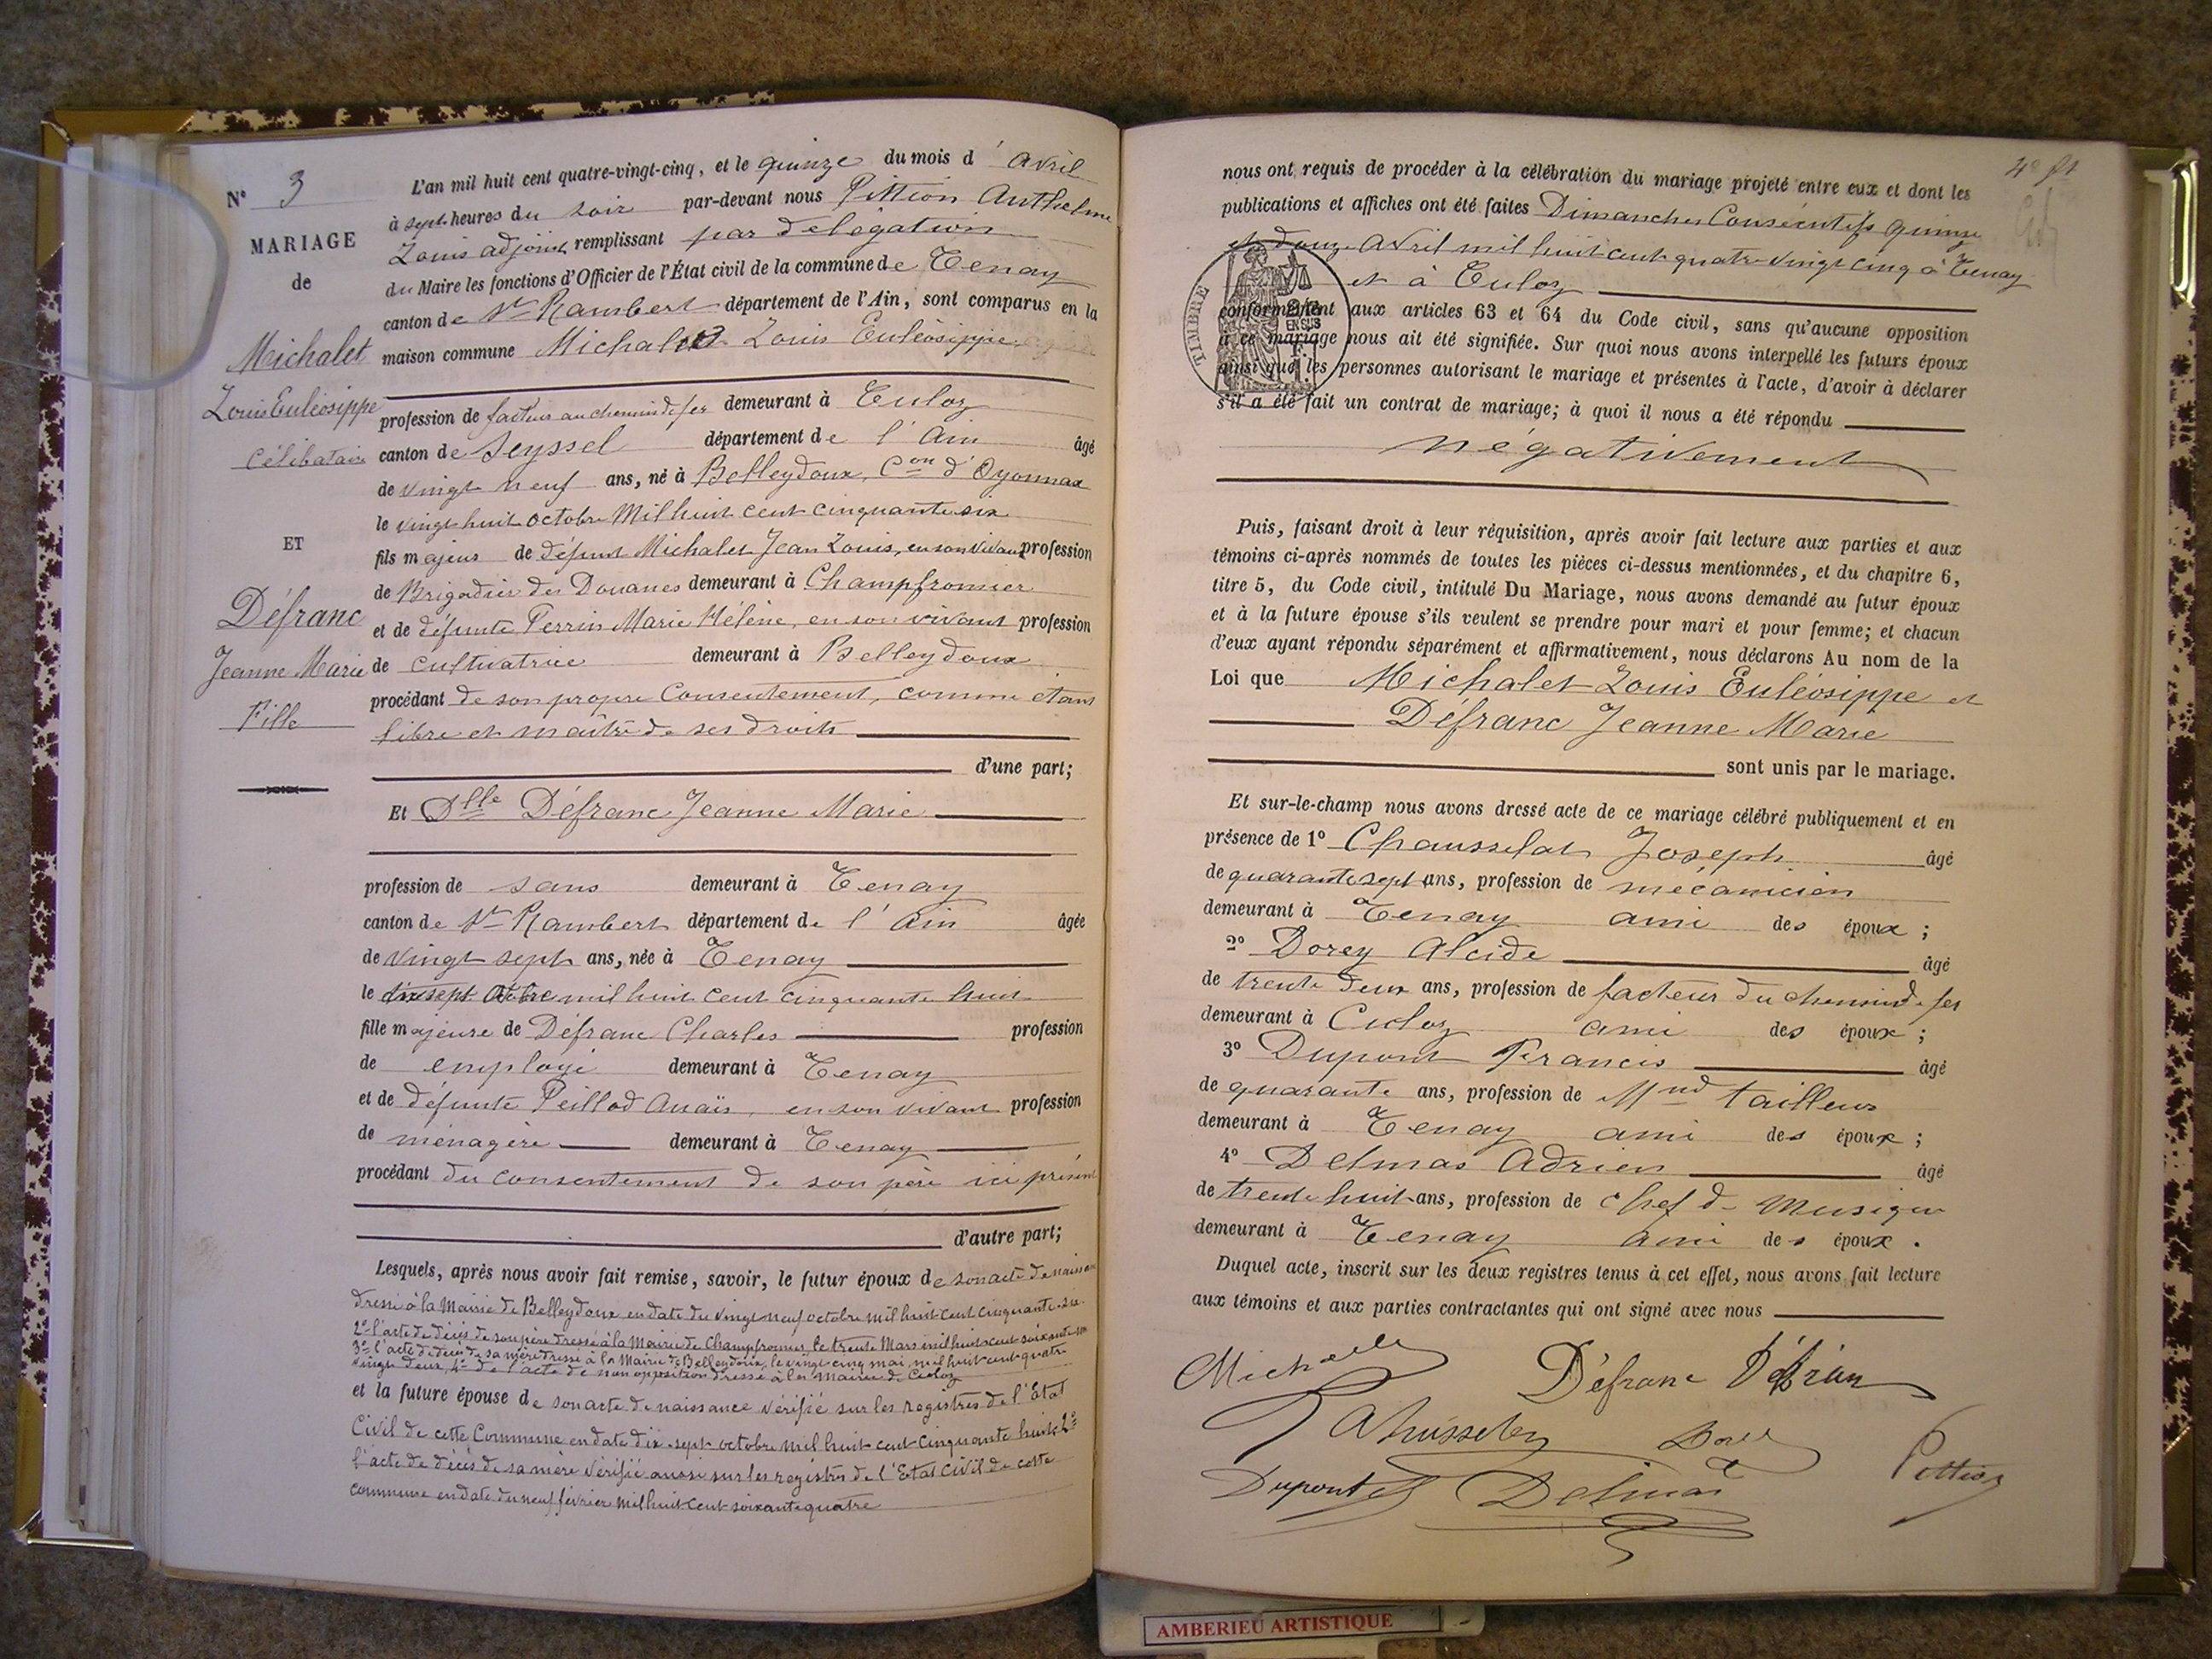 N° 3
MARIAGE
de
Michalet
Louis Euléosippe
célibataire
ET
Défranc
Jeanne Marie
Fille
L'an mil huit cent quatre-vingt-cinq, et le quinze du mois d' avril
à sept heures du soir par-devant nous Pittion Anthelme
Louis adjoint remplissant par délégation
du Maire les fonctions d'Officier de l'État civil de la commune de Tenay
canton de St Rambert département de l'Ain, sont comparus en la
maison commune Michalet Louis Euléosippe
profession de facteur au chemin de fer demeurant à Culoz
canton de Seyssel département de l'Ain âgé
de vingt neuf ans, né à Belleydoux, Con d'Oyonnax
le vingt huit octobre mil huit cent cinquante six
fils majeur de défunt Michalet Jean Louis, en son vivant profession
de Brigadier des Douanes demeurant à Champfromier
et de défunte Perrin Marie Hélène, en son vivant profession
de cultivatrice demeurant à Belleydoux
procédant de son propre consentement, comme étant
libre et maître de ses droits
d'une part;
Et Dlle Défranc Jeanne Marie
profession de sans demeurant à Tenay
canton de St Rambert département de l'Ain âgée
de vingt sept ans, née à Tenay
le dix sept Octobre mil huit cent cinquante huit
fille majeure de Défranc Charles profession
de employé demeurant à Tenay
et de défunte Peillod Anaïs, en son vivant profession
de ménagère demeurant à Tenay
procédant du consentement de son père ici présent
d'autre part;
Lesquels, après nous avoir fait remise, savoir, le futur époux de son acte de naissance
dressé à la Mairie de Belleydoux en date du vingt neuf octobre mil huit cent cinquante six
2° l'acte de décès de son père dressé à la Mairie de Champfromier, le trente Mars mil huit cent soixante
3° l'acte de décès de sa mère dressé à la Mairie de Belleydoux, le vingt cinq mai, mil huit cent quatre
vingt deux, 4° de l'acte de non opposition dressé à la Mairie de Culoz
et la future épouse de son acte de naissance vérifié sur les registres de l'Etat
Civil de cette Commune en date dix-sept octobre mil huit cent cinquante huit 2°
l'acte de décès de sa mère vérifié aussi sur les registres de l'Etat Civil de cette
commune en date du neuf février mil huit cent soixante quatre
nous ont requis de procéder à la célébration du mariage projeté entre eux et dont les
publications et affiches ont été faites Dimanches Consécutifs quinze
et douze Avril mil huit cent quatre vingt cinq à Tenay
et à Culoz
TIMBRE
conformément aux articles 63 et 64 du Code civil, sans qu'aucune opposition
à ce mariage nous ait été signifiée. Sur quoi nous avons interpellé les futurs époux
ainsi que les personnes autorisant le mariage et présentes à l'acte, d'avoir à déclarer
s'il a été fait un contrat de mariage; à quoi il nous a été répondu
négativement
Puis, faisant droit à leur réquisition, après avoir fait lecture aux parties et aux
témoins ci-après nommés de toutes les pièces ci-dessus mentionnées, et du chapitre 6,
titre 5, du Code civil, intitulé Du Mariage, nous avons demandé au futur époux
et à la future épouse s'ils veulent se prendre pour mari et pour femme; et chacun
d'eux ayant répondu séparément et affirmativement, nous déclarons Au nom de la
Loi que Michalet Louis Euléosippe et
Défranc Jeanne Marie
sont unis par le mariage.
Et sur-le-champ nous avons dressé acte de ce mariage célébré publiquement et en
présence de 1° Chausselat Joseph âgé
de quarante sept ans, profession de mécanicien
demeurant à Tenay ami des époux ;
2° Dorey Alcide âgé
de trente deux ans, profession de facteur du chemin de fer
demeurant à Culoz ami des époux ;
3° Dupont Francis âgé
de quarante ans, profession de Mnd tailleur
demeurant à Tenay ami des époux ;
4° Delmas Adrien âgé
de trente huit ans, profession de chef de Musique
demeurant à Tenay ami des époux .
Duquel acte, inscrit sur les deux registres tenus à cet effet, nous avons fait lecture
aux témoins et aux parties contractantes qui ont signé avec nous
Michalet
Défranc Défranc
Dupont
Delmas
Pittion
AMBERIEU ARTISTIQUE